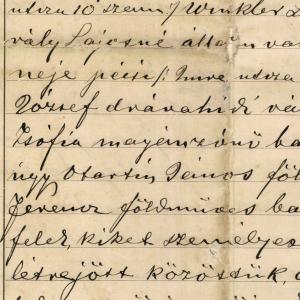 utcza 10 szám / Winkler
vály Lajosné állam va
neje pécsi / Imre utcza
József drávahidi vé
Zsófia magánzónő ba
úgy Martin János föl
Ferencz földműves ba
felek, kiket személyes
létrejött közöttük,